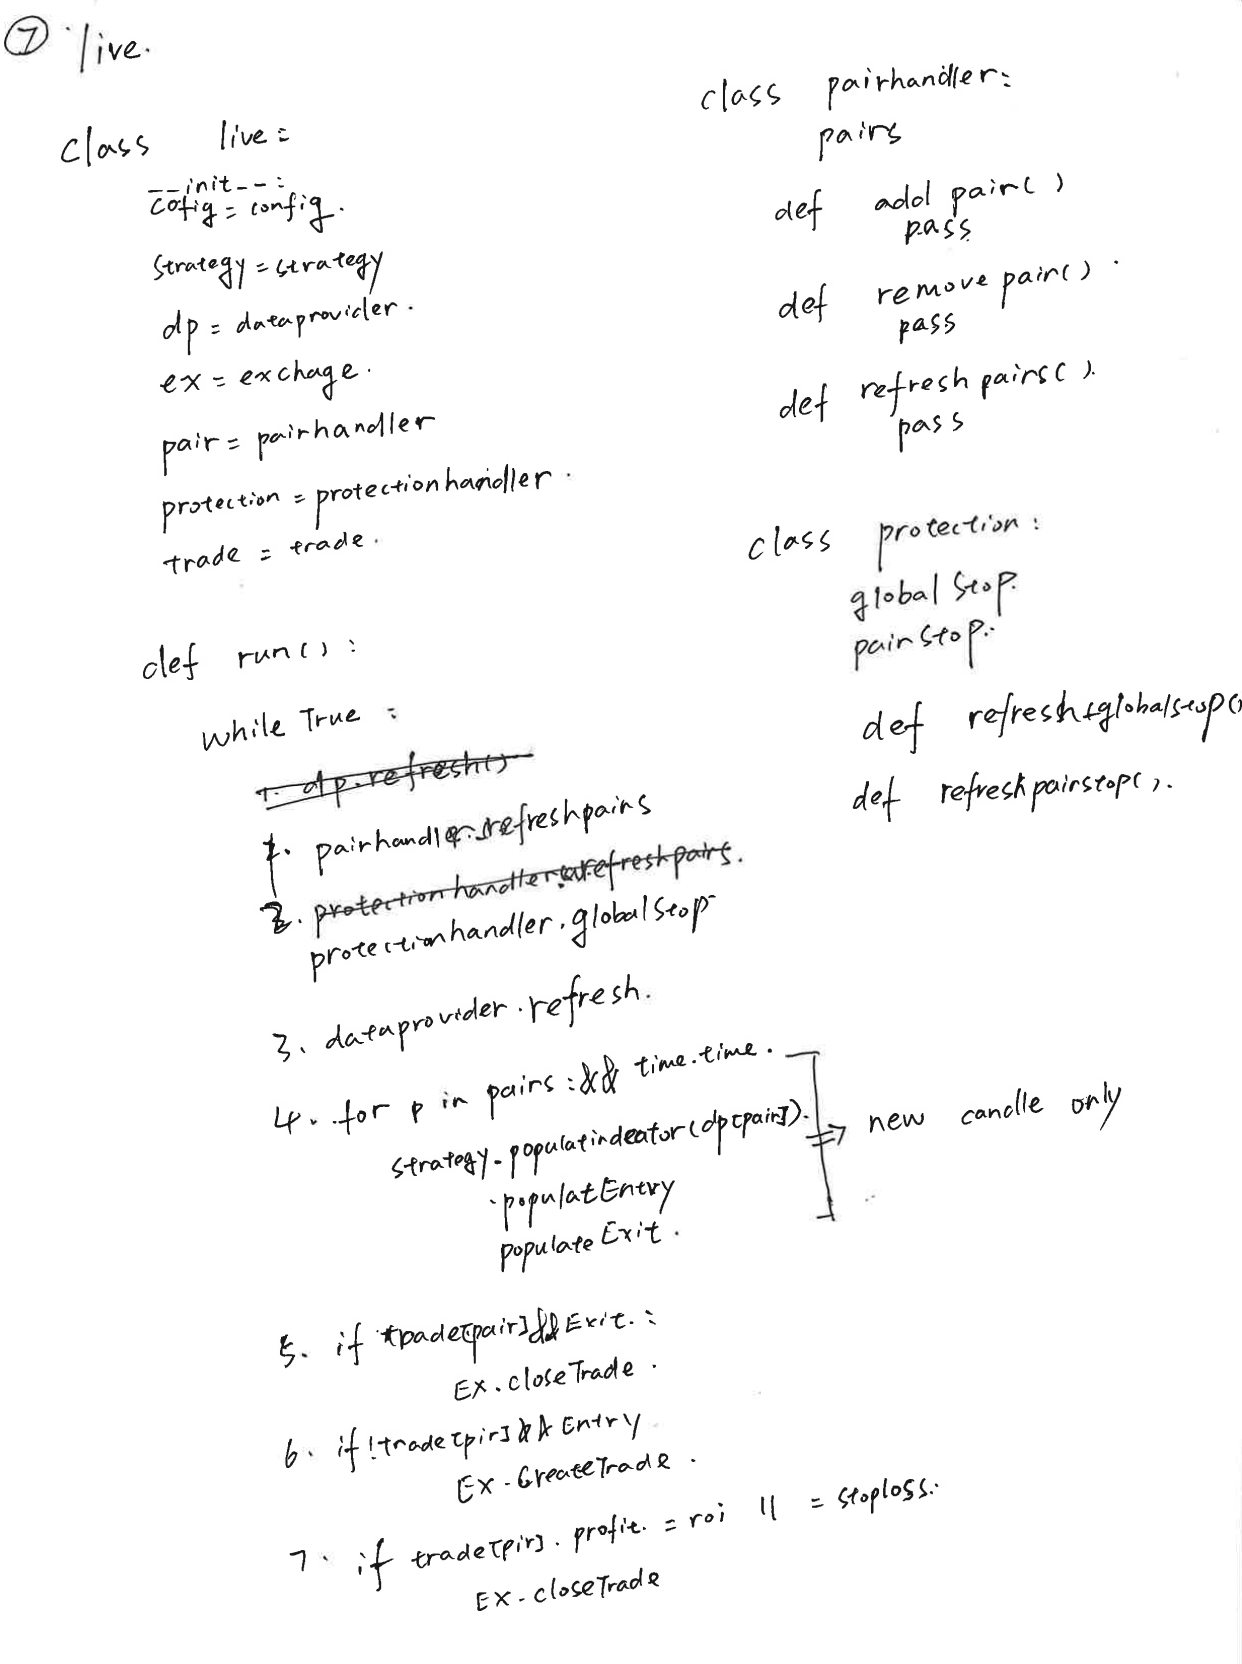 ⑦ live.
class live:
__init__:
cofig = config.
strategy = strategy
dp = dataprovider.
ex = exchage.
pair = pairhandler
protection = protectionhandler.
trade = trade.
def run():
while True:
1. dp.refresh()
1. pairhandler.refreshpairs
2. protectionhandler.refreshpairs.
protectionhandler.globalstop
3. dataprovider.refresh.
4. for p in pairs: && time.time.
strategy.populatindeator(dp[pair]).
.populatEntry
populateExit.
⇒ new candle only
5. if trade[pair] && Exit.:
EX.closeTrade.
6. if !trade[pir] && Entry
EX.GreateTrade.
7. if trade[pir].profit. = roi || = stoploss.
EX.closeTrade
class pairhandler:
pairs
def add pair()
pass
def remove pair()
pass
def refresh pairs().
pass
class protection:
global stop.
pair stop.
def refreshglobalstop()
def refreshpairstop().